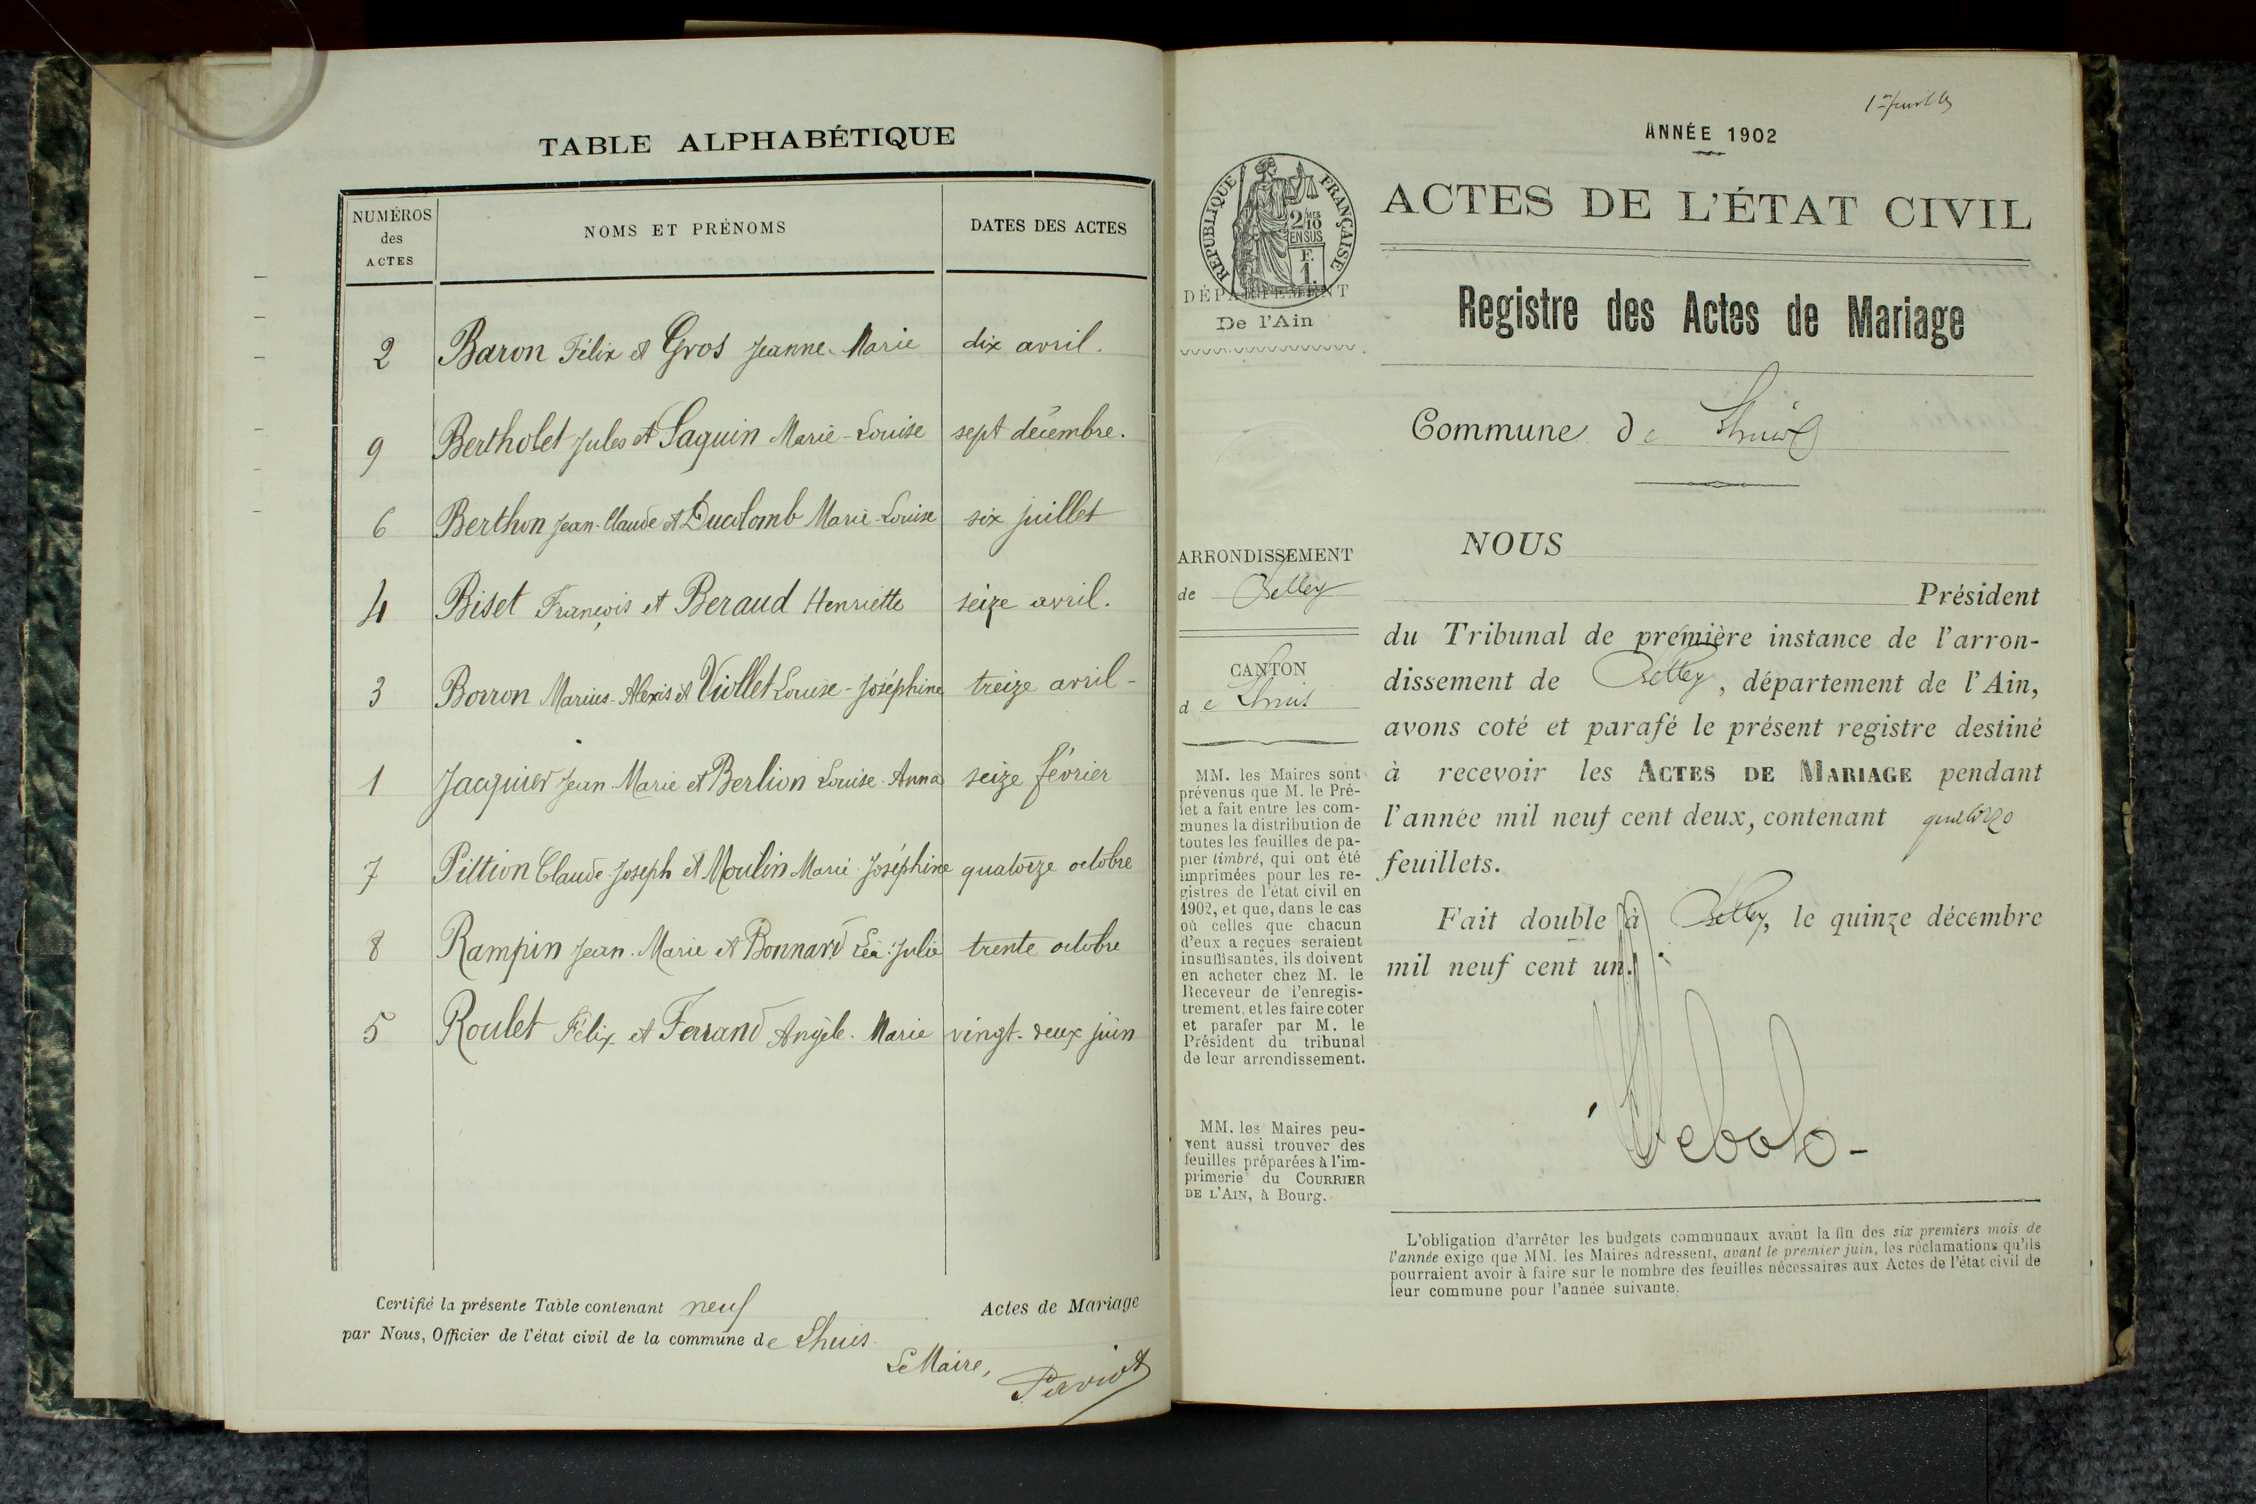 TABLE ALPHABÉTIQUE
NUMÉROS des ACTES
NOMS ET PRÉNOMS
DATES DES ACTES
2 Baron Félix et Gros Jeanne-Marie dix avril.
9 Bertholet Jules et Saguin Marie-Louise sept décembre.
6 Berthon Jean-Claude et Ducolomb Marie-Louise six juillet
4 Biset François et Beraud Henriette seize avril.
3 Borron Marius-Alexis et Viollet Louise-Joséphine treize avril-
1 Jacquier Jean-Marie et Berlion Louise-Anna seize février
7 Piltion Claude-Joseph et Moulin Marie-Joséphine quatorze octobre
8 Rampin Jean-Marie et Bonnard Léa-Julie trente octobre
5 Roulet Félix et Ferrand Angèle-Marie vingt-deux juin
Certifié la présente Table contenant neuf Actes de Mariage
par Nous, Officier de l'état civil de la commune de Lhuis.
Le Maire,
ANNÉE 1902
RÉPUBLIQUE FRANÇAISE
2/10 MES
EN SUS
F.
1.
DÉPARTEMENT
De l'Ain
ARRONDISSEMENT
de Belley
CANTON
de Lhuis
MM. les Maires sont
prévenus que M. le Pré-
fet a fait entre les com-
munes la distribution de
toutes les feuilles de pa-
pier timbré, qui ont été
imprimées pour les re-
gistres de l'état civil en
1902, et que, dans le cas
où celles que chacun
d'eux a reçues seraient
insuffisantes, ils doivent
en acheter chez M. le
Receveur de l'enregis-
trement, et les faire coter
et parafer par M. le
Président du tribunal
de leur arrondissement.
MM. les Maires peu-
vent aussi trouver des
feuilles préparées à l'im-
primerie du COURRIER
DE L'AIN, à Bourg.
ACTES DE L'ÉTAT CIVIL
Registre des Actes de Mariage
Commune de Lhuis
NOUS
Président
du Tribunal de première instance de l'arron-
dissement de Belley, département de l'Ain,
avons coté et parafé le présent registre destiné
à recevoir les ACTES DE MARIAGE pendant
l'année mil neuf cent deux, contenant quatorze
feuillets.
Fait double à Belley, le quinze décembre
mil neuf cent un.
L'obligation d'arrêter les budgets communaux avant la fin des six premiers mois de
l'année exige que MM. les Maires adressent, avant le premier juin, les réclamations qu'ils
pourraient avoir à faire sur le nombre des feuilles nécessaires aux Actes de l'état civil de
leur commune pour l'année suivante.